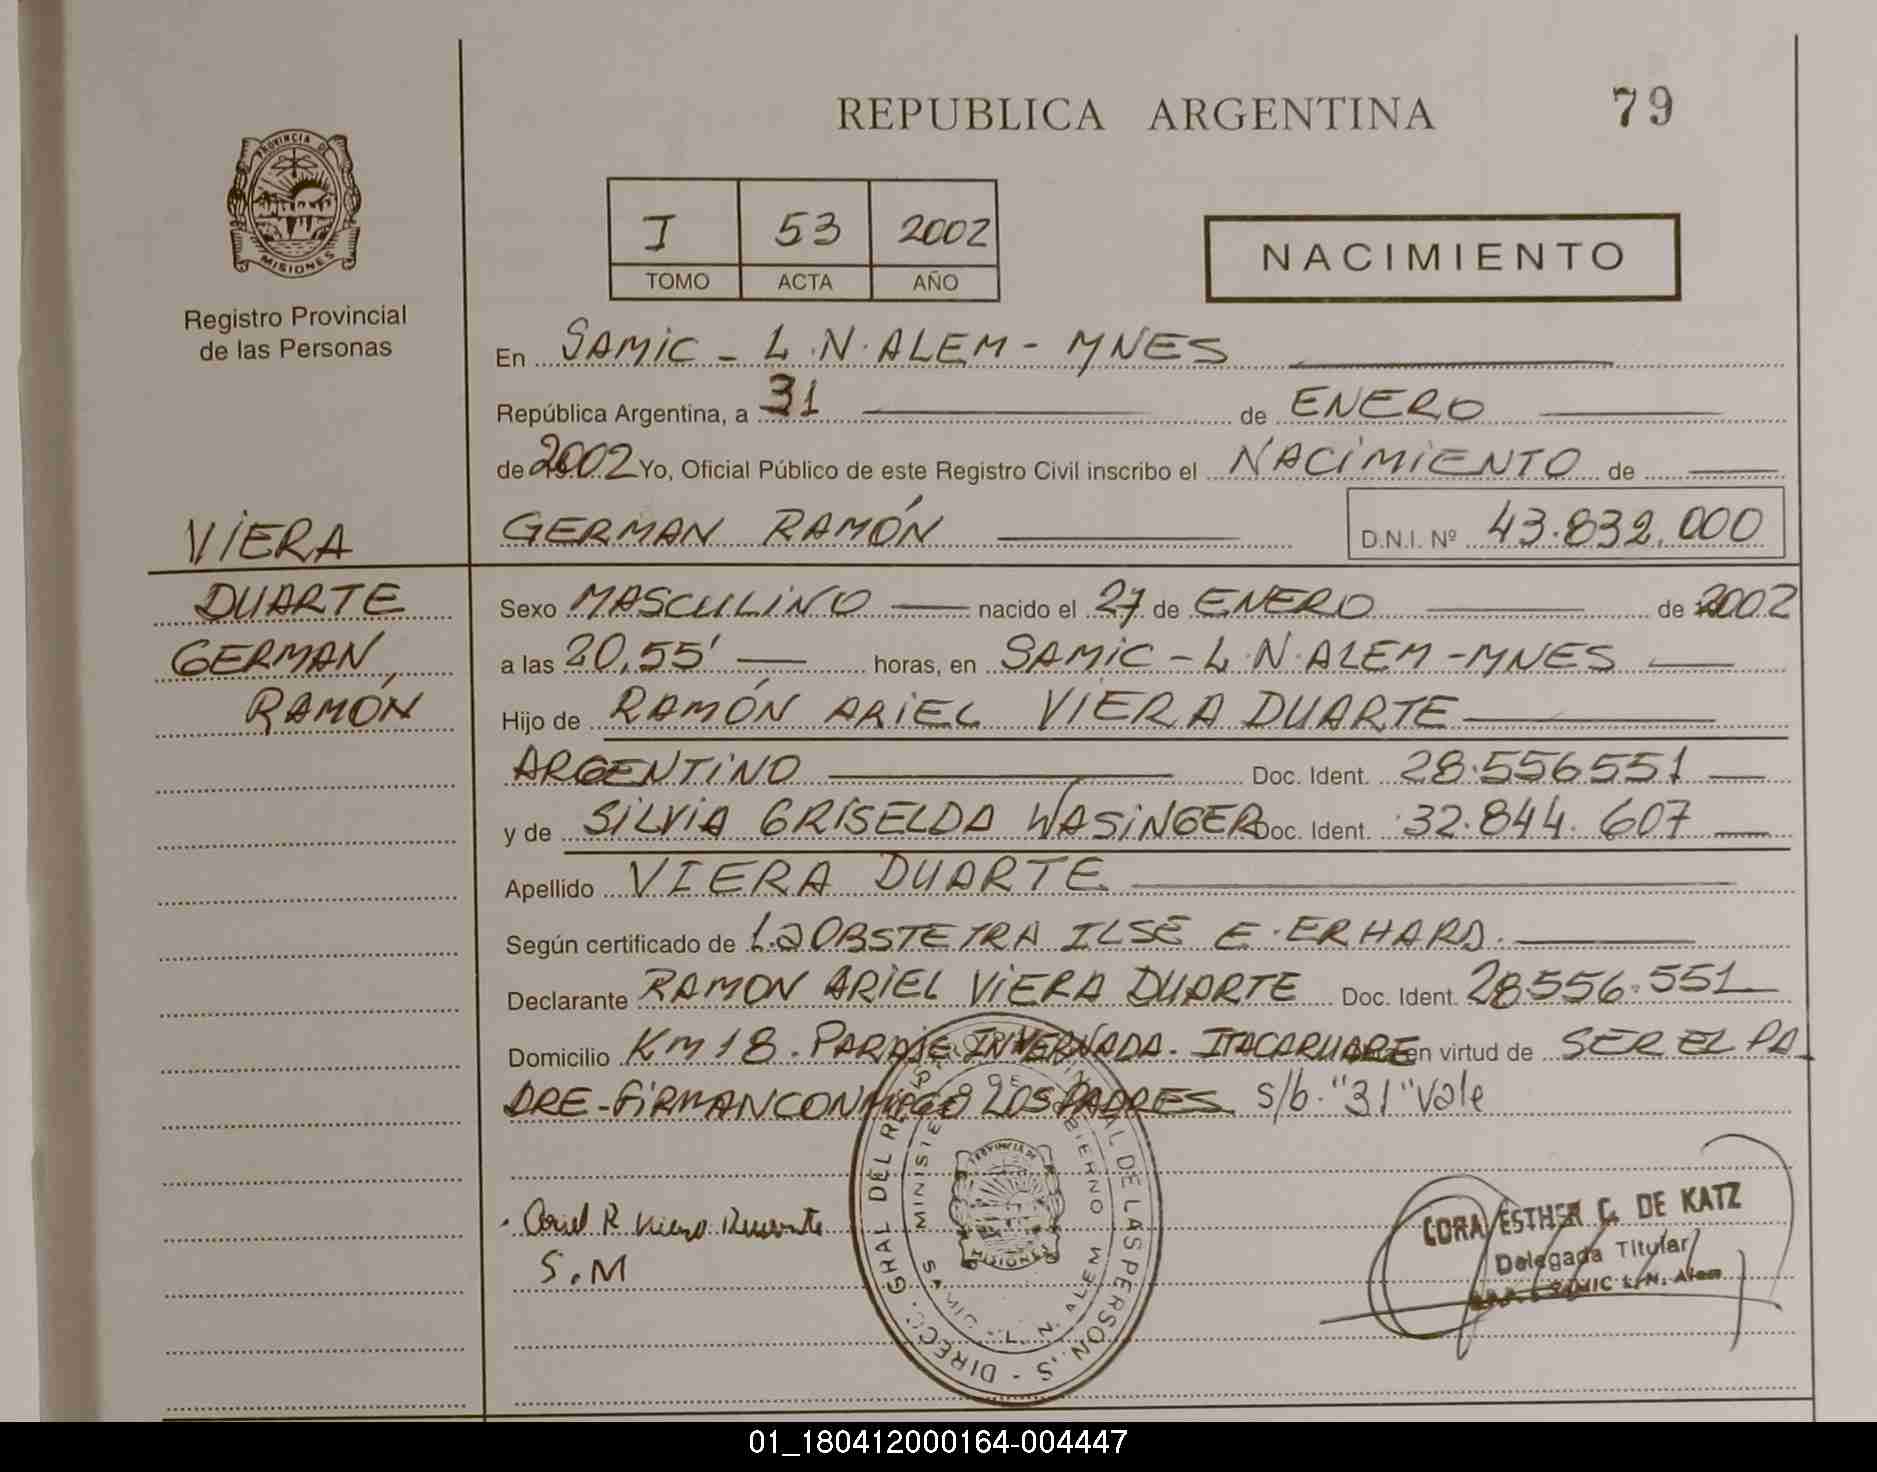 REPUBLICA ARGENTINA
79
PROVINCIA DE
MISIONES
Registro Provincial
de las Personas
I 53 2002
TOMO ACTA AÑO
NACIMIENTO
En SAMIC - L.N.ALEM - MNES
República Argentina, a 31 de ENERO
de 2002 Yo, Oficial Público de este Registro Civil inscribo el NACIMIENTO de
VIERA
GERMAN RAMÓN D.N.I. Nº 43.832.000
DUARTE
Sexo MASCULINO nacido el 27 de ENERO de 2002
GERMAN
a las 20,55' horas, en SAMIC - L.N.ALEM - MNES
RAMÓN
Hijo de RAMÓN ARIEL VIERA DUARTE
ARGENTINO Doc. Ident. 28.556551
y de SILVIA GRISELDA WASINGER Doc. Ident. 32.844.607
Apellido VIERA DUARTE
Según certificado de La OBSTETRA ILSE E. ERHARD.
Declarante RAMON ARIEL VIERA DUARTE Doc. Ident. 28556.551
Domicilio KM 18. PARAJE INVERNADA. ITACARUARE en virtud de SER EL PA
DRE - FIRMAN CONMIGO LOS PADRES s/b. "31" vale
S.M
PROVINCIA DE
MISIONES
CORA ESTHER C. DE KATZ
Delegada Titular
SAMIC L.N. Alem
01_180412000164-004447